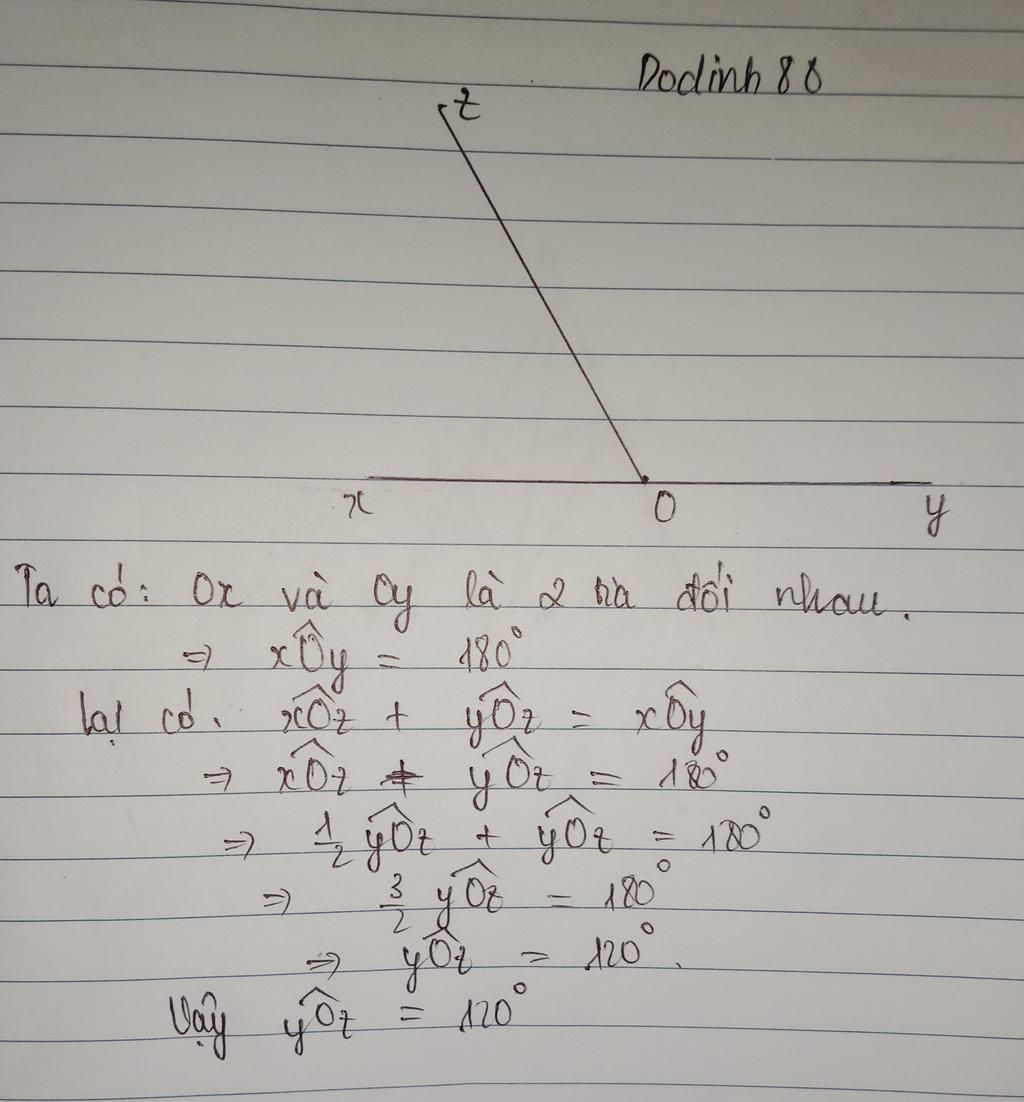 Dodinh 88
z
x O y
Ta có: Ox và Oy là 2 tia đối nhau.
⇒ xÔy = 180°
lại có. xÔz + yÔz = xÔy
⇒ xÔz + yÔz = 180°
⇒ 1/2 yÔz + yÔz = 180°
⇒ 3/2 yÔz = 180°
⇒ yÔz = 120°.
Vậy yÔz = 120°